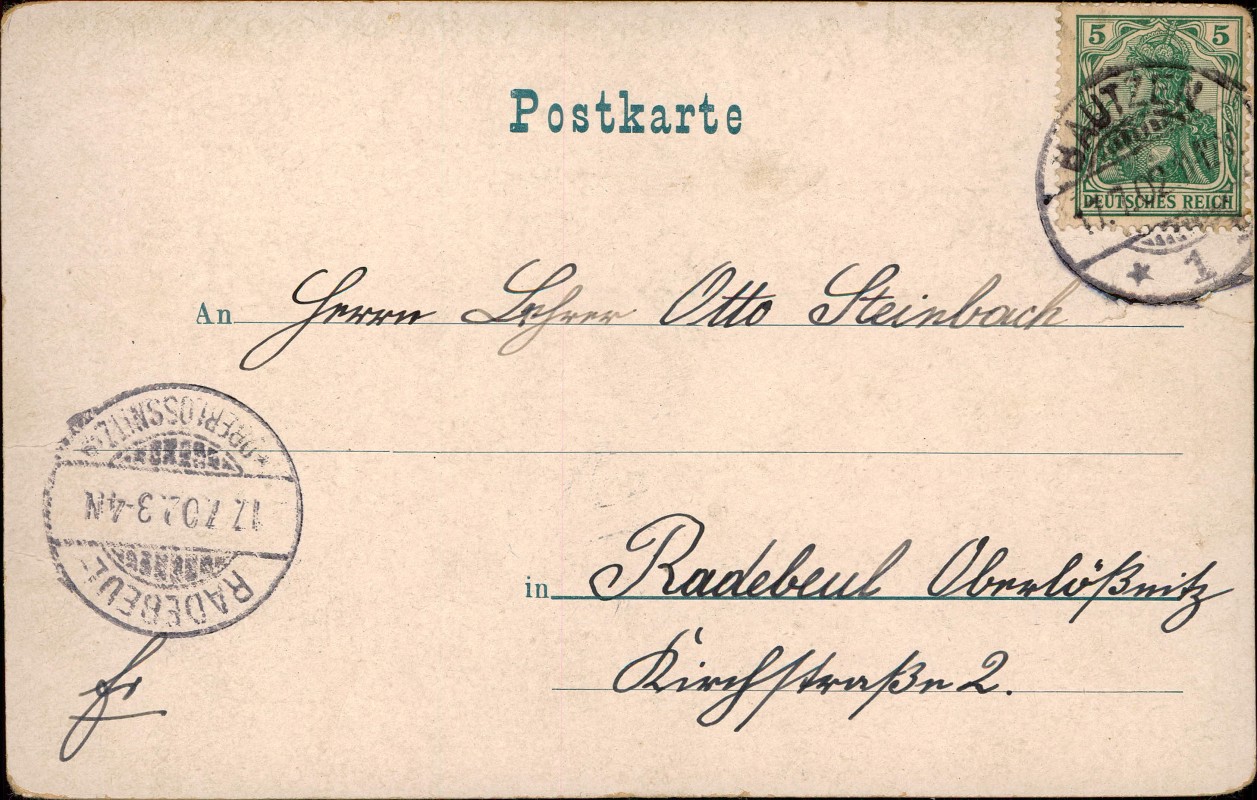 5 5
BAUTZEN
17.7.02
DEUTSCHES REICH
* 1
Postkarte
An Herrn Lehrer Otto Steinbach
*OBERLÖSSNITZ*
17.7.02.3-4N
RADEBEUL-
in Radebeul Oberlößnitz
Kirchstraße 2.